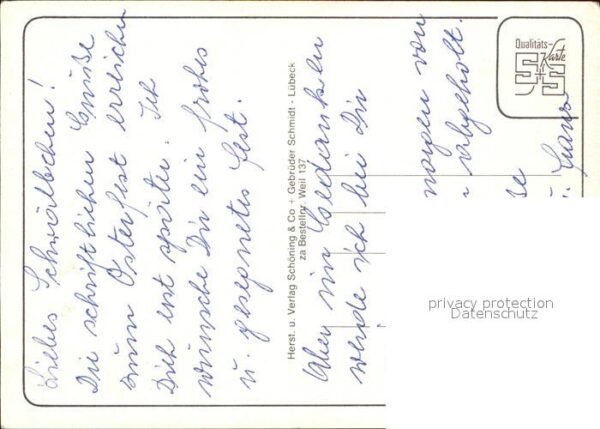 Liebes Schwälbchen!
Die schriftlichen Grüße
zum Osterfest erreichen
Dich erst später. Ich
wünsche Dir ein frohes
u. gesegnetes Fest.
Herst. u. Verlag Schöning & Co + Gebrüder Schmidt - Lübeck
za Bestellnr. Weil 137
Aber in Gedanken
werde ich bei Dir
morgen von
abgeholt.
Qualitäts-
Karte
privacy protection
Datenschutz